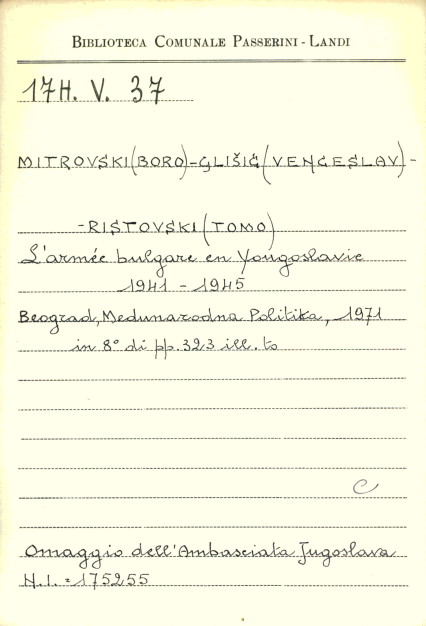 BIBLIOTECA COMUNALE PASSERINI - LANDI
17H. V. 37
MITROVSKI (BORO) - GLIŠIĆ (VENCESLAV) -
- RISTOVSKI (TOMO)
L'armée bulgare en Yougoslavie
1941 - 1945
Beograd, Medunarodna Politika, 1971
in 8° di pp. 323 ill. to
C
Omaggio dell'Ambasciata Jugoslava
N.I. = 175255